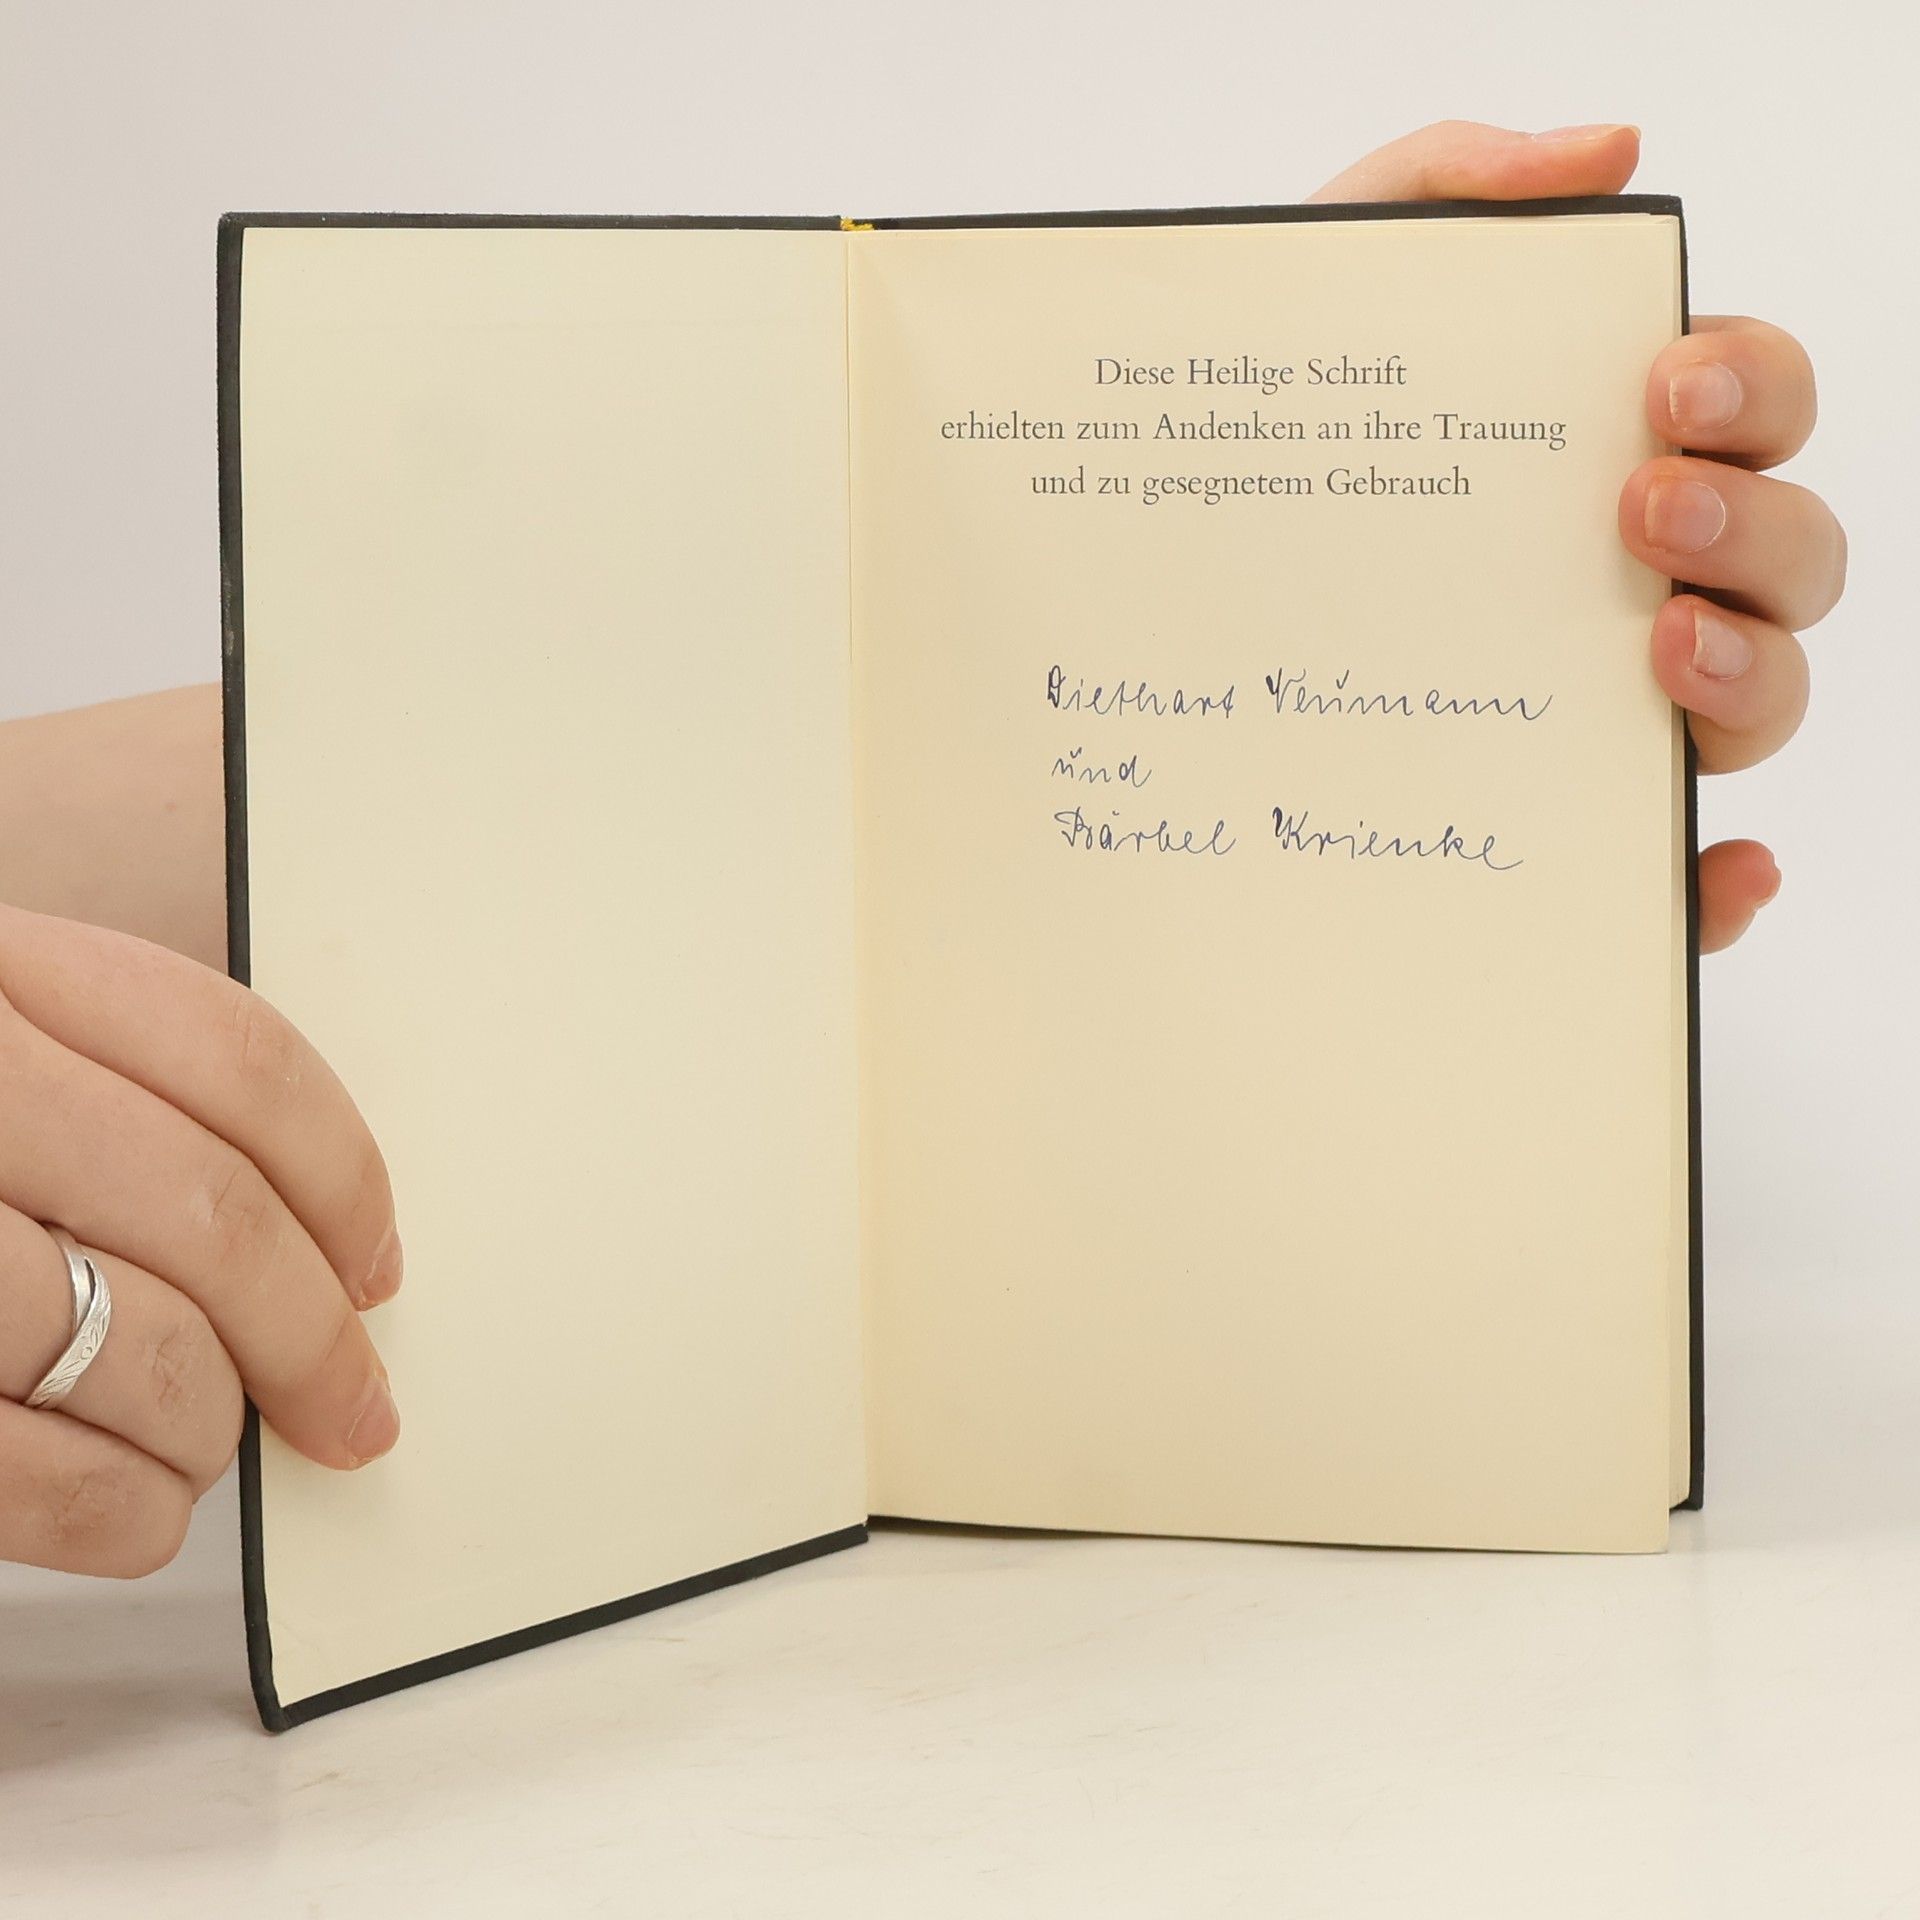 Diese Heilige Schrift
erhielten zum Andenken an ihre Trauung
und zu gesegnetem Gebrauch
Diethart Neumann
und
Bärbel Krienke